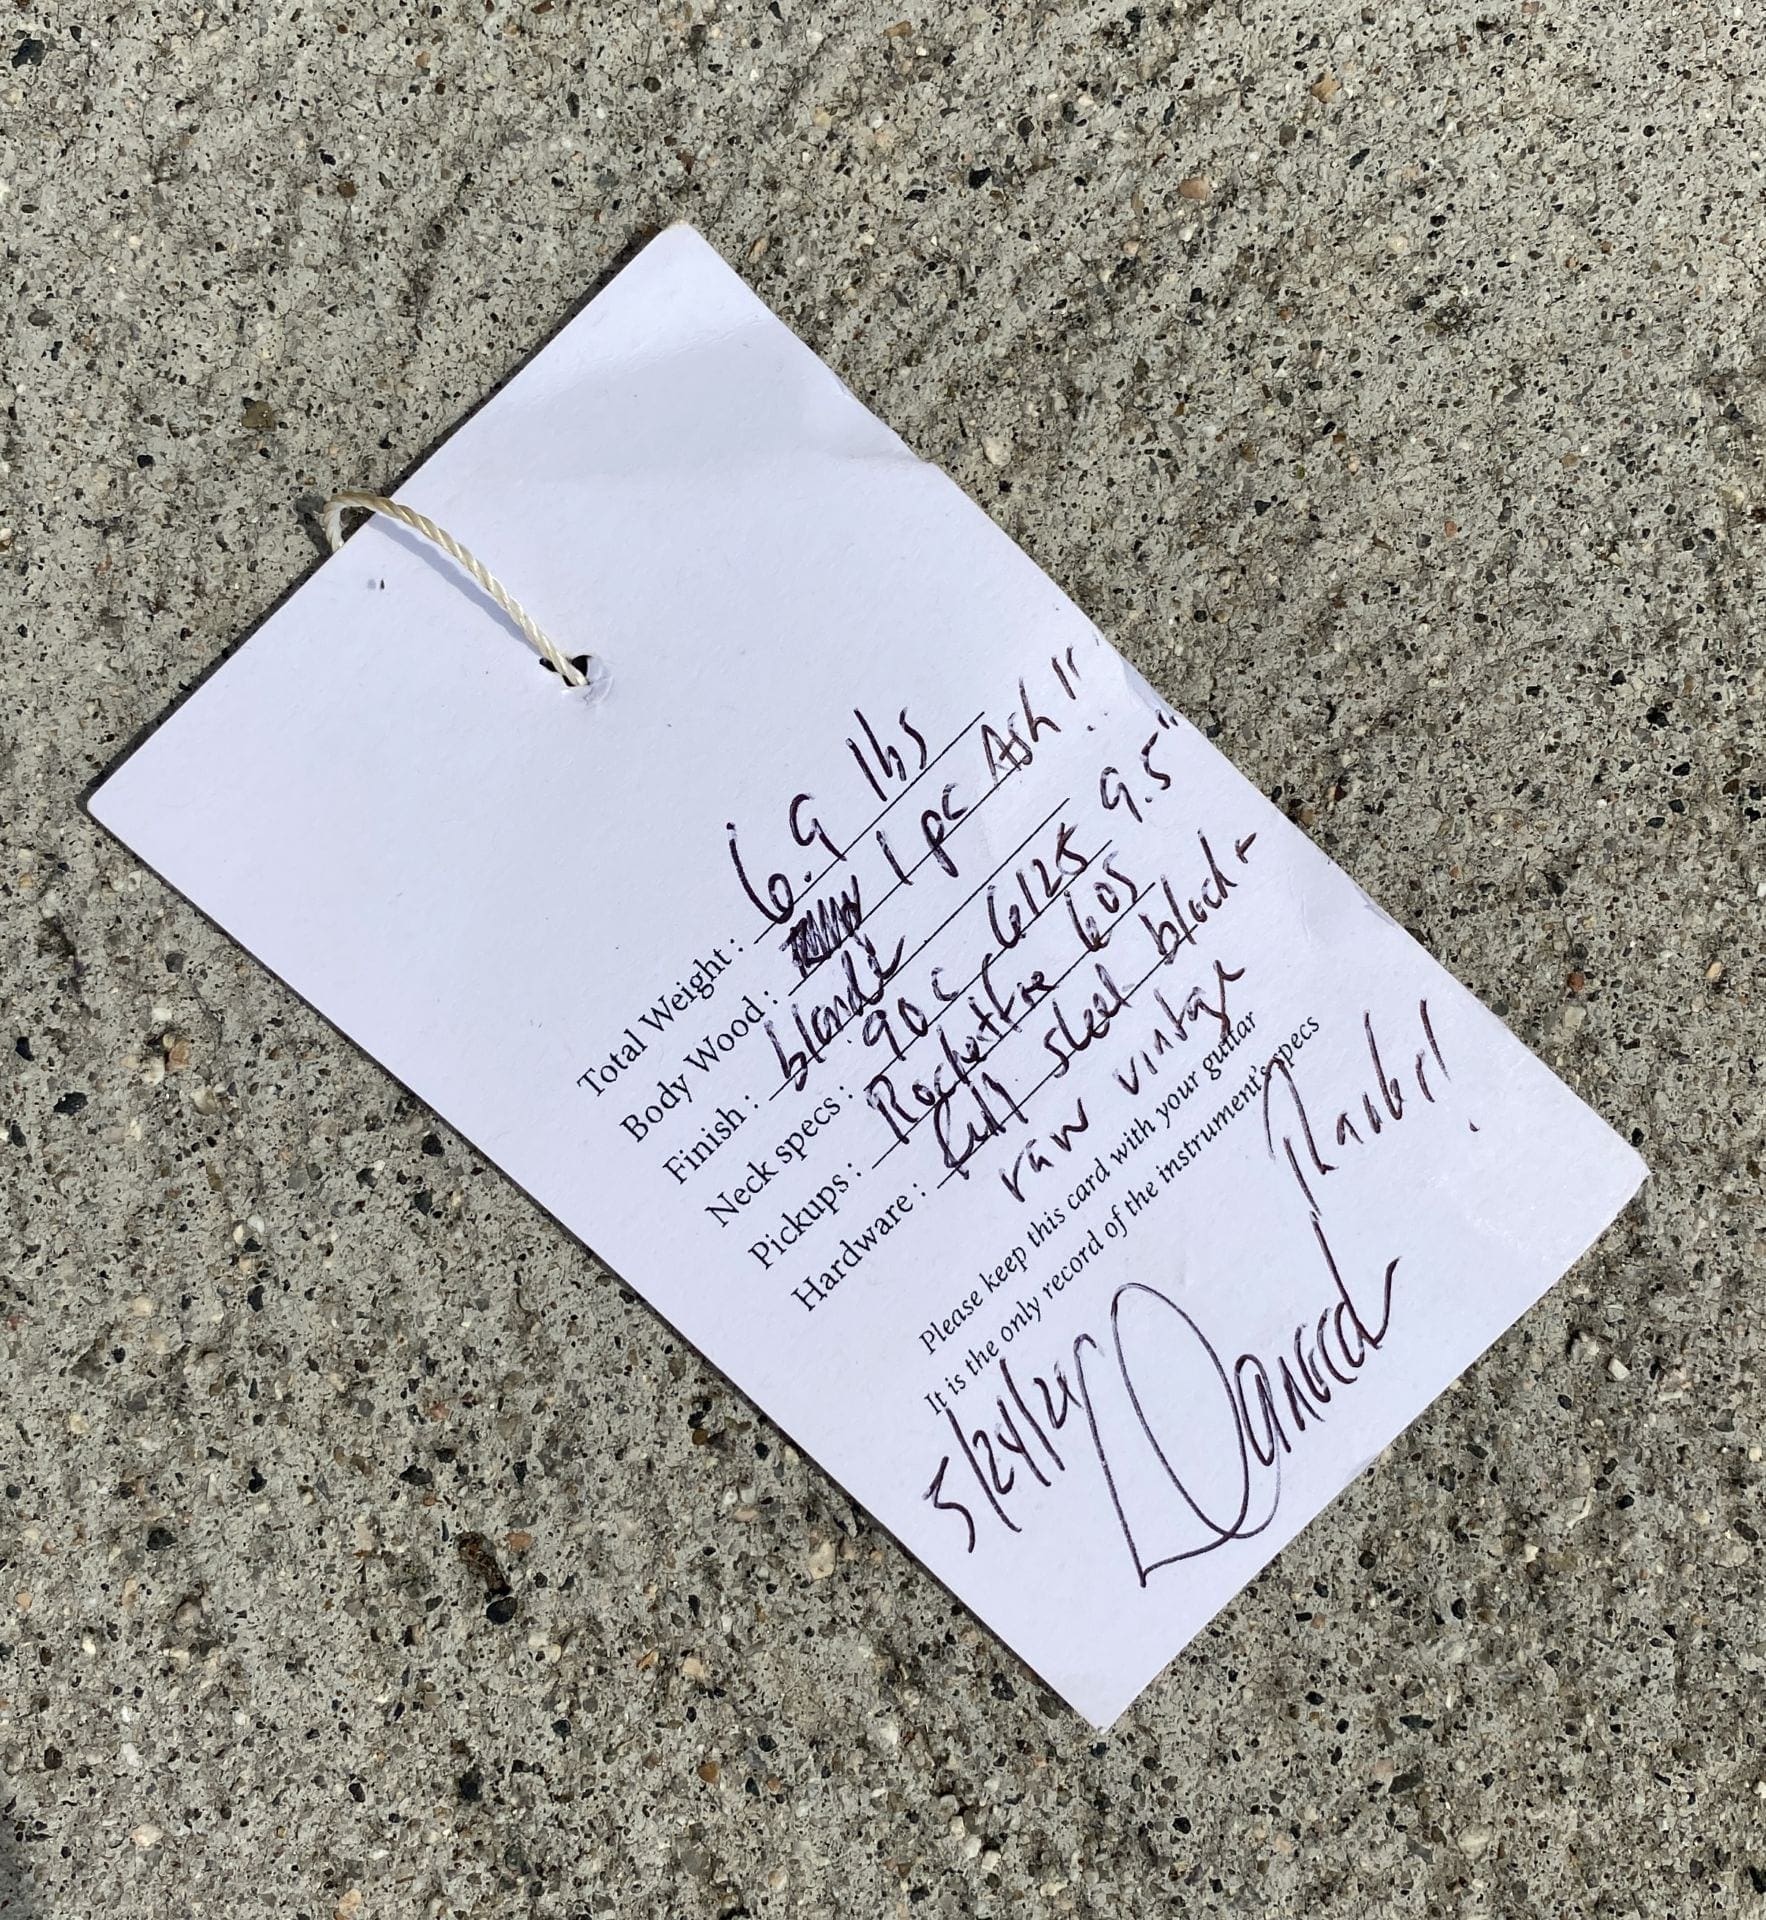 Total Weight : 6.9 lbs
Body Wood : 1 pc Ash !!
Finish : blonde
Neck specs : .90 c 6125 9.5"
Pickups : Rocketfire 605
Hardware : full steel block +
raw vintage
Please keep this card with your guitar
It is the only record of the instrument's specs
Thanks!
5/24/21